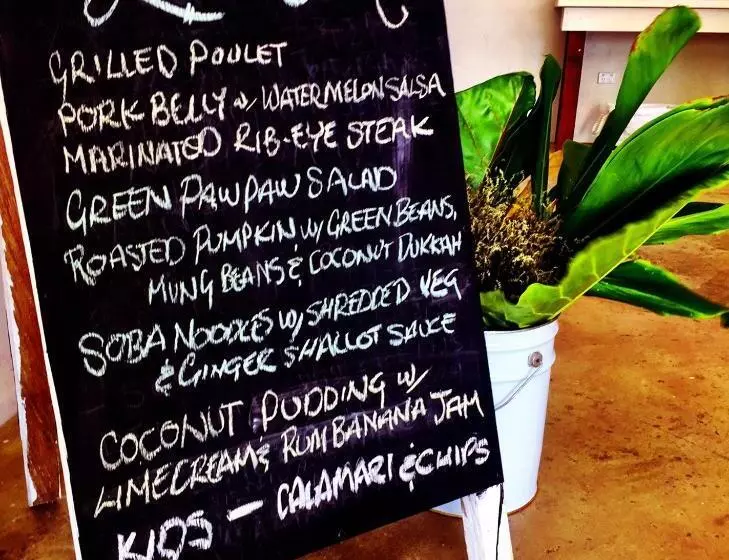 GRILLED POULET
PORK BELLY w/ WATERMELON SALSA
MARINATED RIB-EYE STEAK
GREEN PAWPAW SALAD
ROASTED PUMPKIN w/ GREEN BEANS,
MUNG BEANS & COCONUT DUKKAH
SOBA NOODLES w/ SHREDDED VEG
& GINGER SHALLOT SAUCE
COCONUT PUDDING w/
LIME CREAM & RUM BANANA JAM
KIDS - CALAMARI & CHIPS